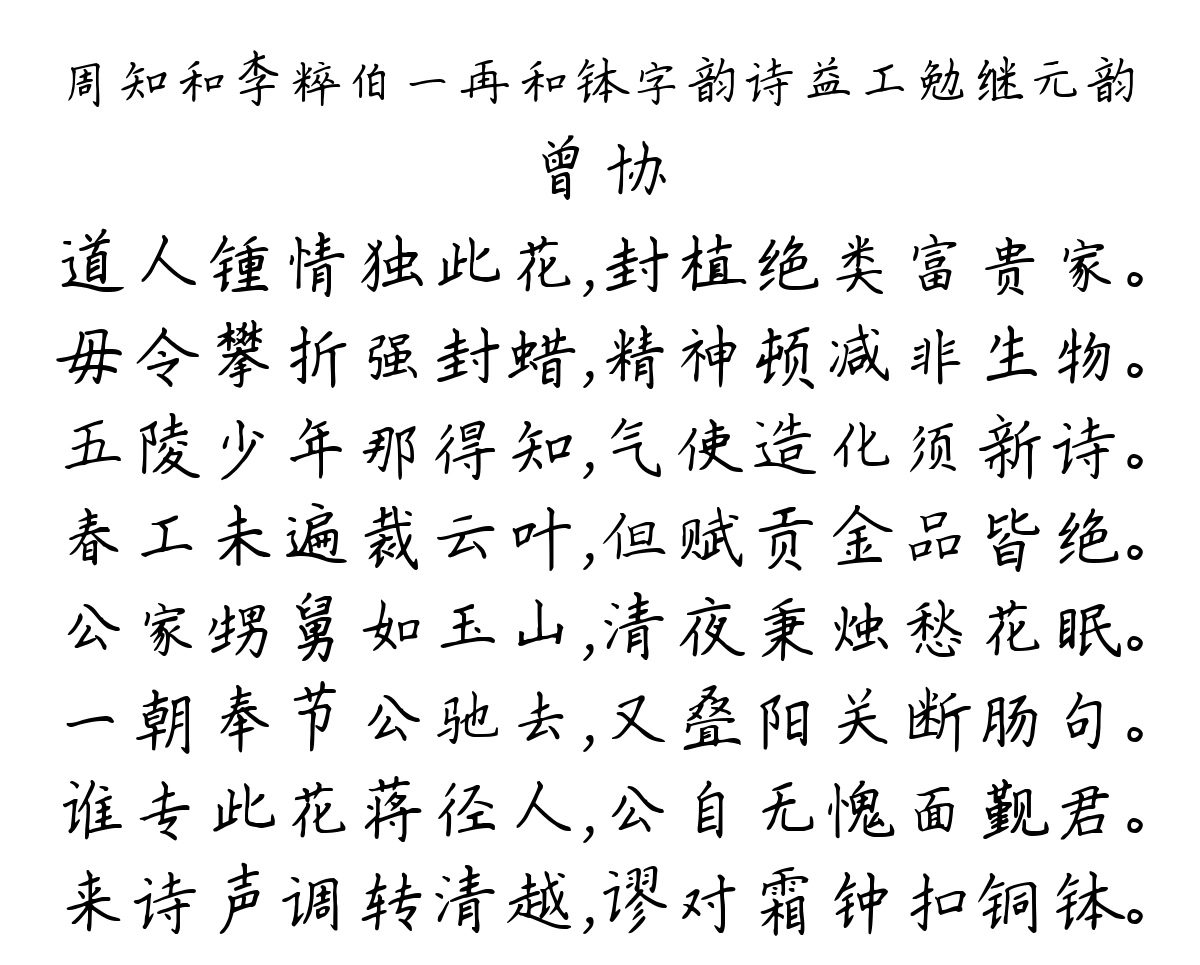 周知和李粹伯一再和钵字韵诗益工勉继元韵
曾协
道人锺情独此花,封植绝类富贵家。
毋令攀折强封蜡,精神顿减非生物。
五陵少年那得知,气使造化须新诗。
春工未遍裁云叶,但赋贡金品皆绝。
公家甥舅如玉山,清夜秉烛愁花眠。
一朝奉节公驰去,又叠阳关断肠句。
谁专此花蒋径人,公自无愧面觐君。
来诗声调转清越,谬对霜钟扣铜钵。